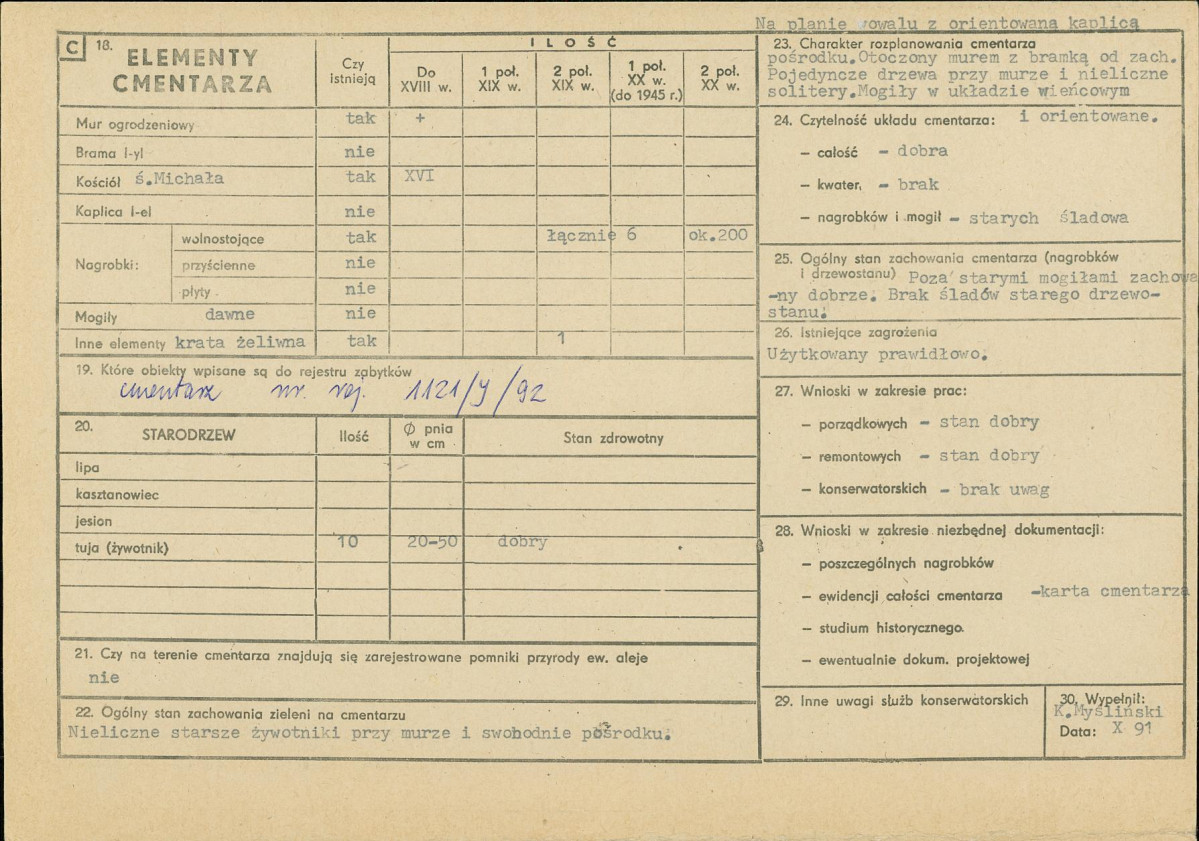 Na planie owalu z orientowaną kaplicą
C 18. ELEMENTY CMENTARZA
Czy istnieją
ILOŚĆ
Do XVIII w.
1 poł. XIX w.
2 poł. XIX w.
1 poł. XX w. (do 1945 r.)
2 poł. XX w.
Mur ogrodzeniowy tak +
Brama I-yl nie
Kościół ś.Michała tak XVI
Kaplica I-el nie
Nagrobki:
wolnostojące tak łącznie 6 ok.200
przyścienne nie
płyty nie
Mogiły dawne nie
Inne elementy krata żeliwna tak 1
19. Które obiekty wpisane są do rejestru zabytków
cmentarz nr. rej. 1121/J/92
20. STARODRZEW Ilość Ø pnia w cm Stan zdrowotny
lipa
kasztanowiec
jesion
tuja (żywotnik) 10 20-50 dobry
21. Czy na terenie cmentarza znajdują się zarejestrowane pomniki przyrody ew. aleje
nie
22. Ogólny stan zachowania zieleni na cmentarzu
Nieliczne starsze żywotniki przy murze i swobodnie pośrodku.
23. Charakter rozplanowania cmentarza
pośrodku.Otoczony murem z bramką od zach.
Pojedyncze drzewa przy murze i nieliczne
solitery.Mogiły w układzie wieńcowym
24. Czytelność układu cmentarza: i orientowane.
– całość – dobra
– kwater, – brak
– nagrobków i mogił – starych śladowa
25. Ogólny stan zachowania cmentarza (nagrobków
i drzewostanu) Poza starymi mogiłami zachowa
-ny dobrze. Brak śladów starego drzewo-
stanu.
26. Istniejące zagrożenia
Użytkowany prawidłowo.
27. Wnioski w zakresie prac:
– porządkowych – stan dobry
– remontowych – stan dobry
– konserwatorskich – brak uwag
28. Wnioski w zakresie niezbędnej dokumentacji:
– poszczególnych nagrobków
– ewidencji całości cmentarza -karta cmentarza
– studium historycznego.
– ewentualnie dokum. projektowej
29. Inne uwagi służb konserwatorskich
30. Wypełnił:
K.Myśliński
Data: X 91